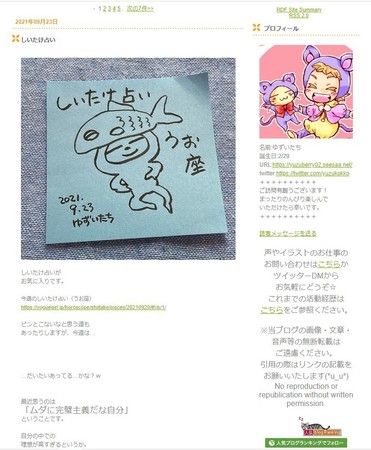 < 1 2 3 4 5 . 次の7件>>
2021年09月23日
しいたけ占い
しいたけ占い
うお
座
2021.
9.23
ゆずいたち
しいたけ占いが
お気に入りです。
今週のしいたけ占い(うお座)
ピンとこないなと思う週も
あったりしますが、今週は…
…だいたいあってる…かな？w
最近思うのは
「ムダに完璧主義だな自分」
ということです。
自分の中での
理想が高すぎるというか、
RDF Site Summary
RSS 2.0
プロフィール
名前:ゆずいたち
誕生日:2/29
URL:https://yuzuberry02.seesaa.net/
ご訪問有難うございます！
まったりのんびり楽しんで
いただけたら幸いです。
++++++++++
読者メッセージを送る
声やイラストのお仕事の
お問い合わせはこちらか
ツイッターDMから
お気軽にどうぞ☆
これまでの活動経歴は
こちらをご参照ください。
※当ブログの画像・文章・
音声等の無断転載は
ご遠慮ください。
引用の際はリンクの記載を
お願いいたします(*u_u*)
No reproduction or
republication without written
permission.
人気ブログランキングでフォロー